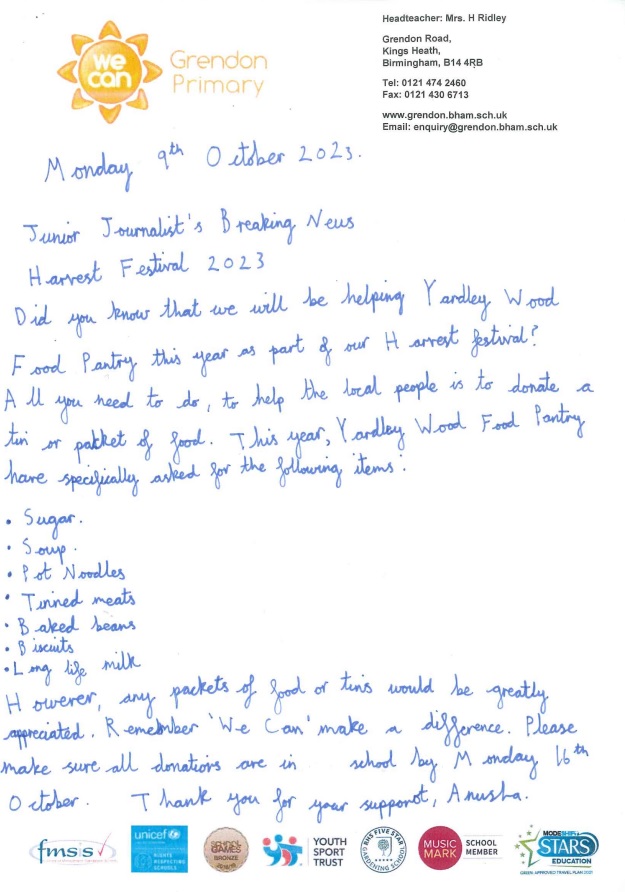 we can
Grendon
Primary
Headteacher: Mrs. H Ridley
Grendon Road,
Kings Heath,
Birmingham, B14 4RB
Tel: 0121 474 2460
Fax: 0121 430 6713
www.grendon.bham.sch.uk
Email: enquiry@grendon.bham.sch.uk
Monday 9th October 2023.
Junior Journalist's Breaking News
Harvest Festival 2023
Did you know that we will be helping Yardley Wood
Food Pantry this year as part of our Harvest festival?
All you need to do, to help the local people is to donate a
tin or packet of food. This year, Yardley Wood Food Pantry
have specifically asked for the following items:
• Sugar.
• Soup.
• Pot Noodles
• Tinned meats
• Baked beans
• Biscuits
• Long life milk
However, any packets of food or tins would be greatly
appreciated. Remember 'We Can' make a difference. Please
make sure all donations are in school by Monday 16th
October. Thank you for your support, Anusha.
fmsis
unicef
RIGHTS RESPECTING SCHOOLS
SCHOOL GAMES
BRONZE
YOUTH SPORT TRUST
RHS FIVE STAR GARDENING SCHOOL
MUSIC MARK
SCHOOL MEMBER
MODESHIFT
STARS
EDUCATION
GREEN APPROVED TRAVEL PLAN 2021